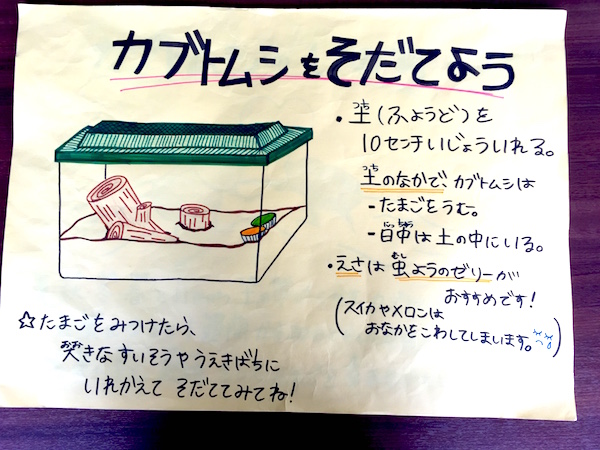 カブトムシをそだてよう
・土(ふようど)を
10センチいじょういれる。
土のなかで、カブトムシは
-たまごをうむ。
-は土の中にいる。
・えさは虫ようのゼリーが
おすすめです!
(スイカやメロンは
おなかをこわしてしまいます。)
☆たまごをみつけたら、
大きなすいそうやうえきばちに
いれかえて そだててみてね!